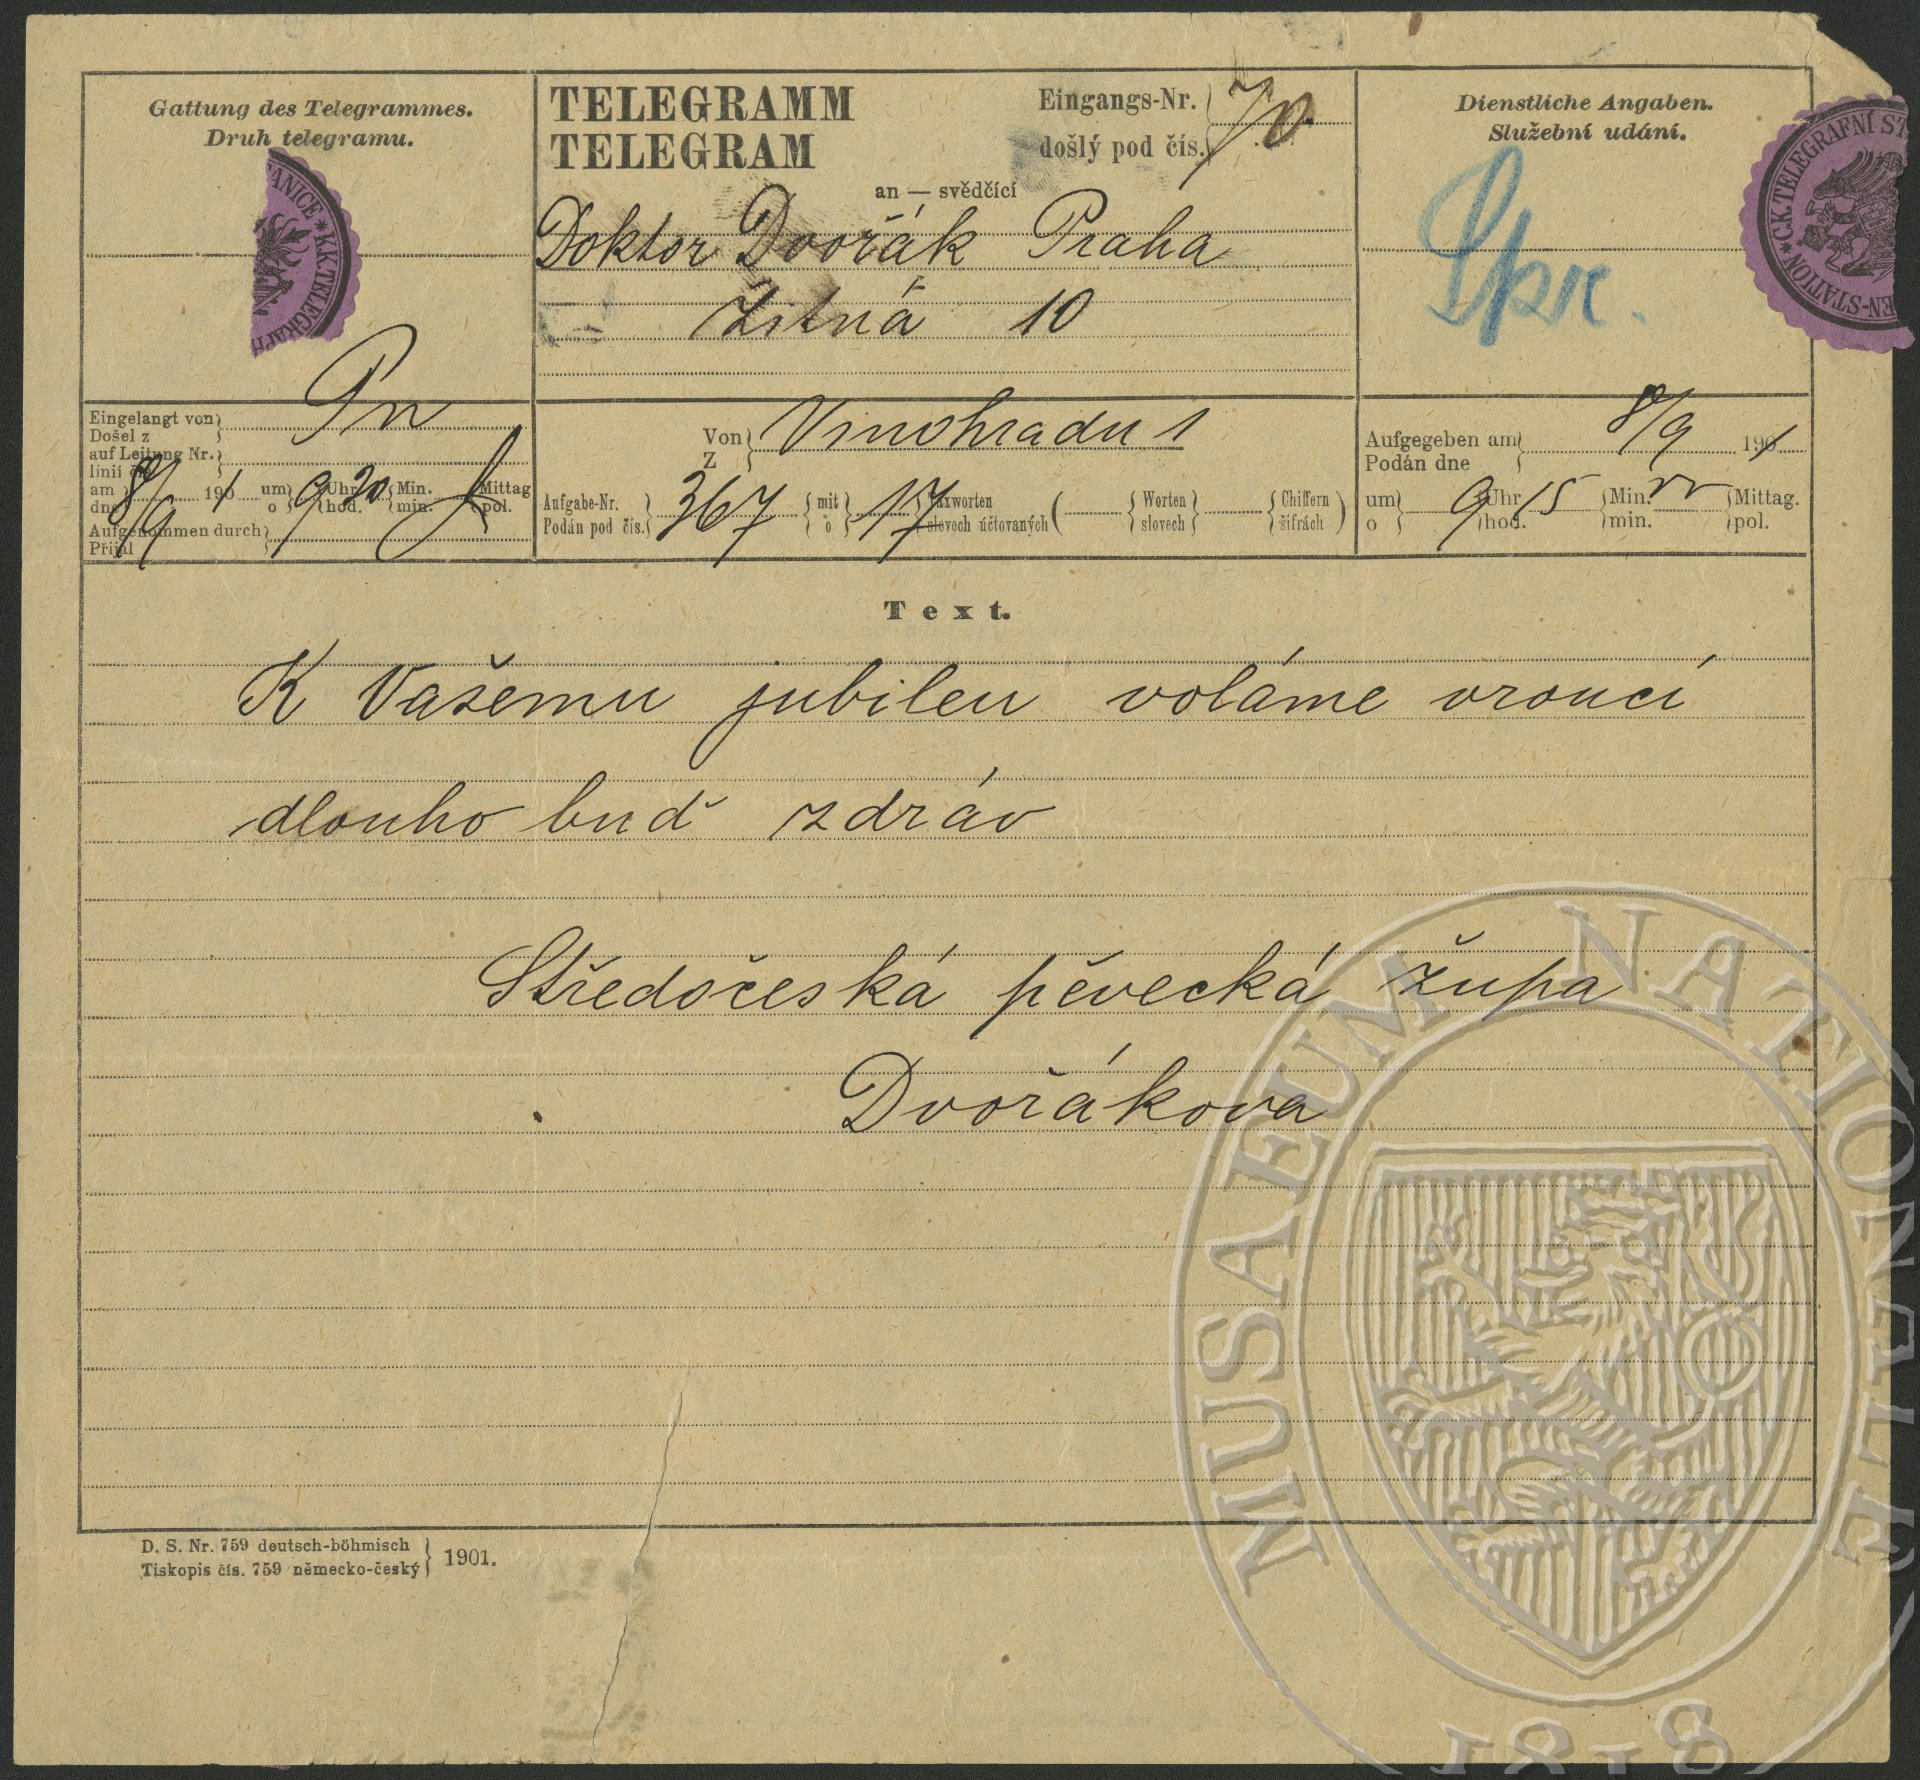 Gattung des Telegrammes.
Druh telegramu.
TELEGRAMM
TELEGRAM
Eingangs-Nr.
došlý pod čís.
70
an — svědčící
Doktor Dvořák Praha
Žitná 10
Dienstliche Angaben.
Služební udání.
ANICE * K.K. TELEGRAPH
* C.K. TELEGRAFNÍ ST
EN-STATION
Eingelangt von
Došel z
Pn
auf Leitung Nr.
linií čís.
am
dne
8/9 1901 um
o
9 Uhr
hod.
30 Min.
min.
Mittag
pol.
Aufgenommen durch
Přijal
Von
Z
Vinohradu 1
Aufgabe-Nr.
Podán pod čís.
367
mit
o
17 Taxworten
slovech účtovaných
Worten
slovech
Chiffern
šifrách
Aufgegeben am
Podán dne
8/9 1901
um
o
9 Uhr
hod.
15 Min.
min.
Mittag.
pol.
Text.
K Vašemu jubileu voláme vroucí
dlouho buď zdráv
Středočeská pěvecká župa
Dvořákova
D. S. Nr. 759 deutsch-böhmisch
Tiskopis čís. 759 německo-český
1901.
MUSAEUM NATIONALE
1818